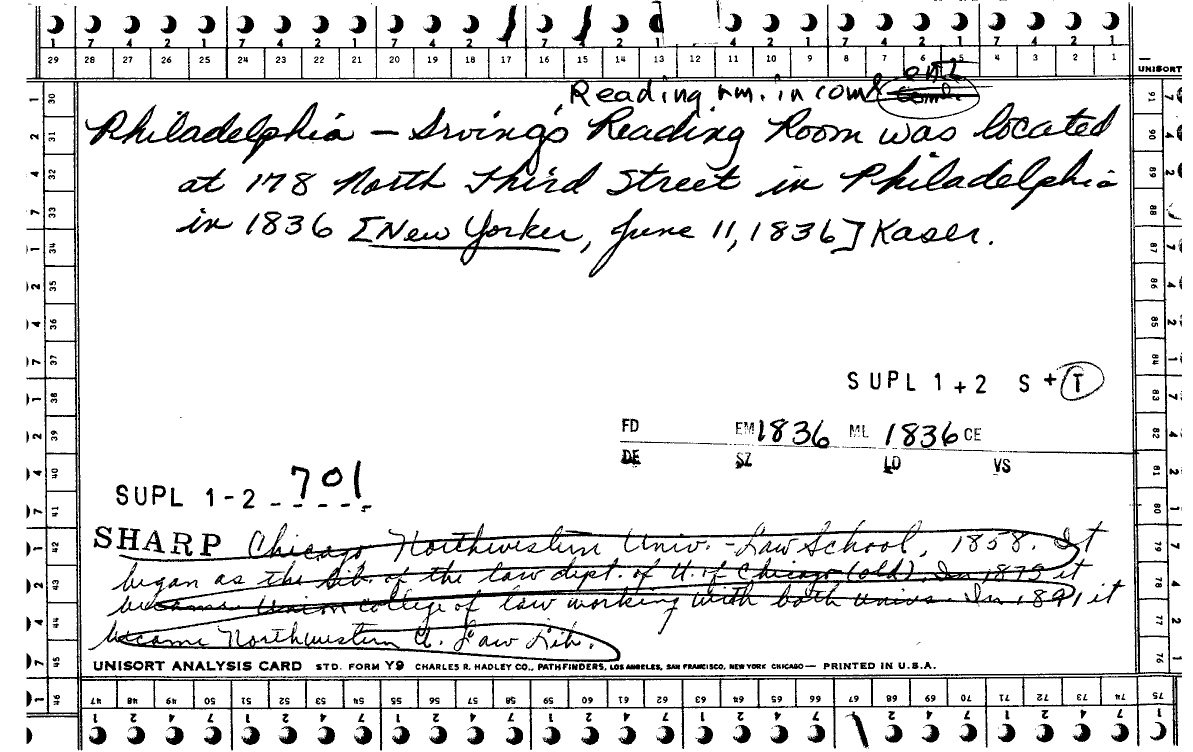 1 7 4 2 1 7 4 2 1 7 4 2 1 7 4 2 1 4 2 1 7 4 2 1 7 4 2 1
29 28 27 26 25 24 23 22 21 20 19 18 17 16 15 14 13 12 11 10 9 8 7 6 5 4 3 2 1
UNISORT
Reading rm. in com & ent
Philadelphia – Irving's Reading Room was located
at 178 North Third Street in Philadelphia
in 1836 [New Yorker, June 11, 1836] Kaser.
SUPL 1+2 S+T
FD EM 1836 ML 1836 CE
DE SZ LD VS
SUPL 1-2 701
SHARP Chicago Northwestern Univ. - Law School, 1858. It
began as the Lib. of the law dept. of U. of Chicago (old). In 1873 it
became Union college of law working with both Univs. In 1891 it
became Northwestern U. Law Lib.
UNISORT ANALYSIS CARD STD. FORM Y9 CHARLES R. HADLEY CO., PATHFINDERS, LOS ANGELES, SAN FRANCISCO, NEW YORK CHICAGO — PRINTED IN U.S.A.
47 48 49 50 51 52 53 54 55 56 57 58 59 60 61 62 63 64 65 66 67 68 69 70 71 72 73 74 75